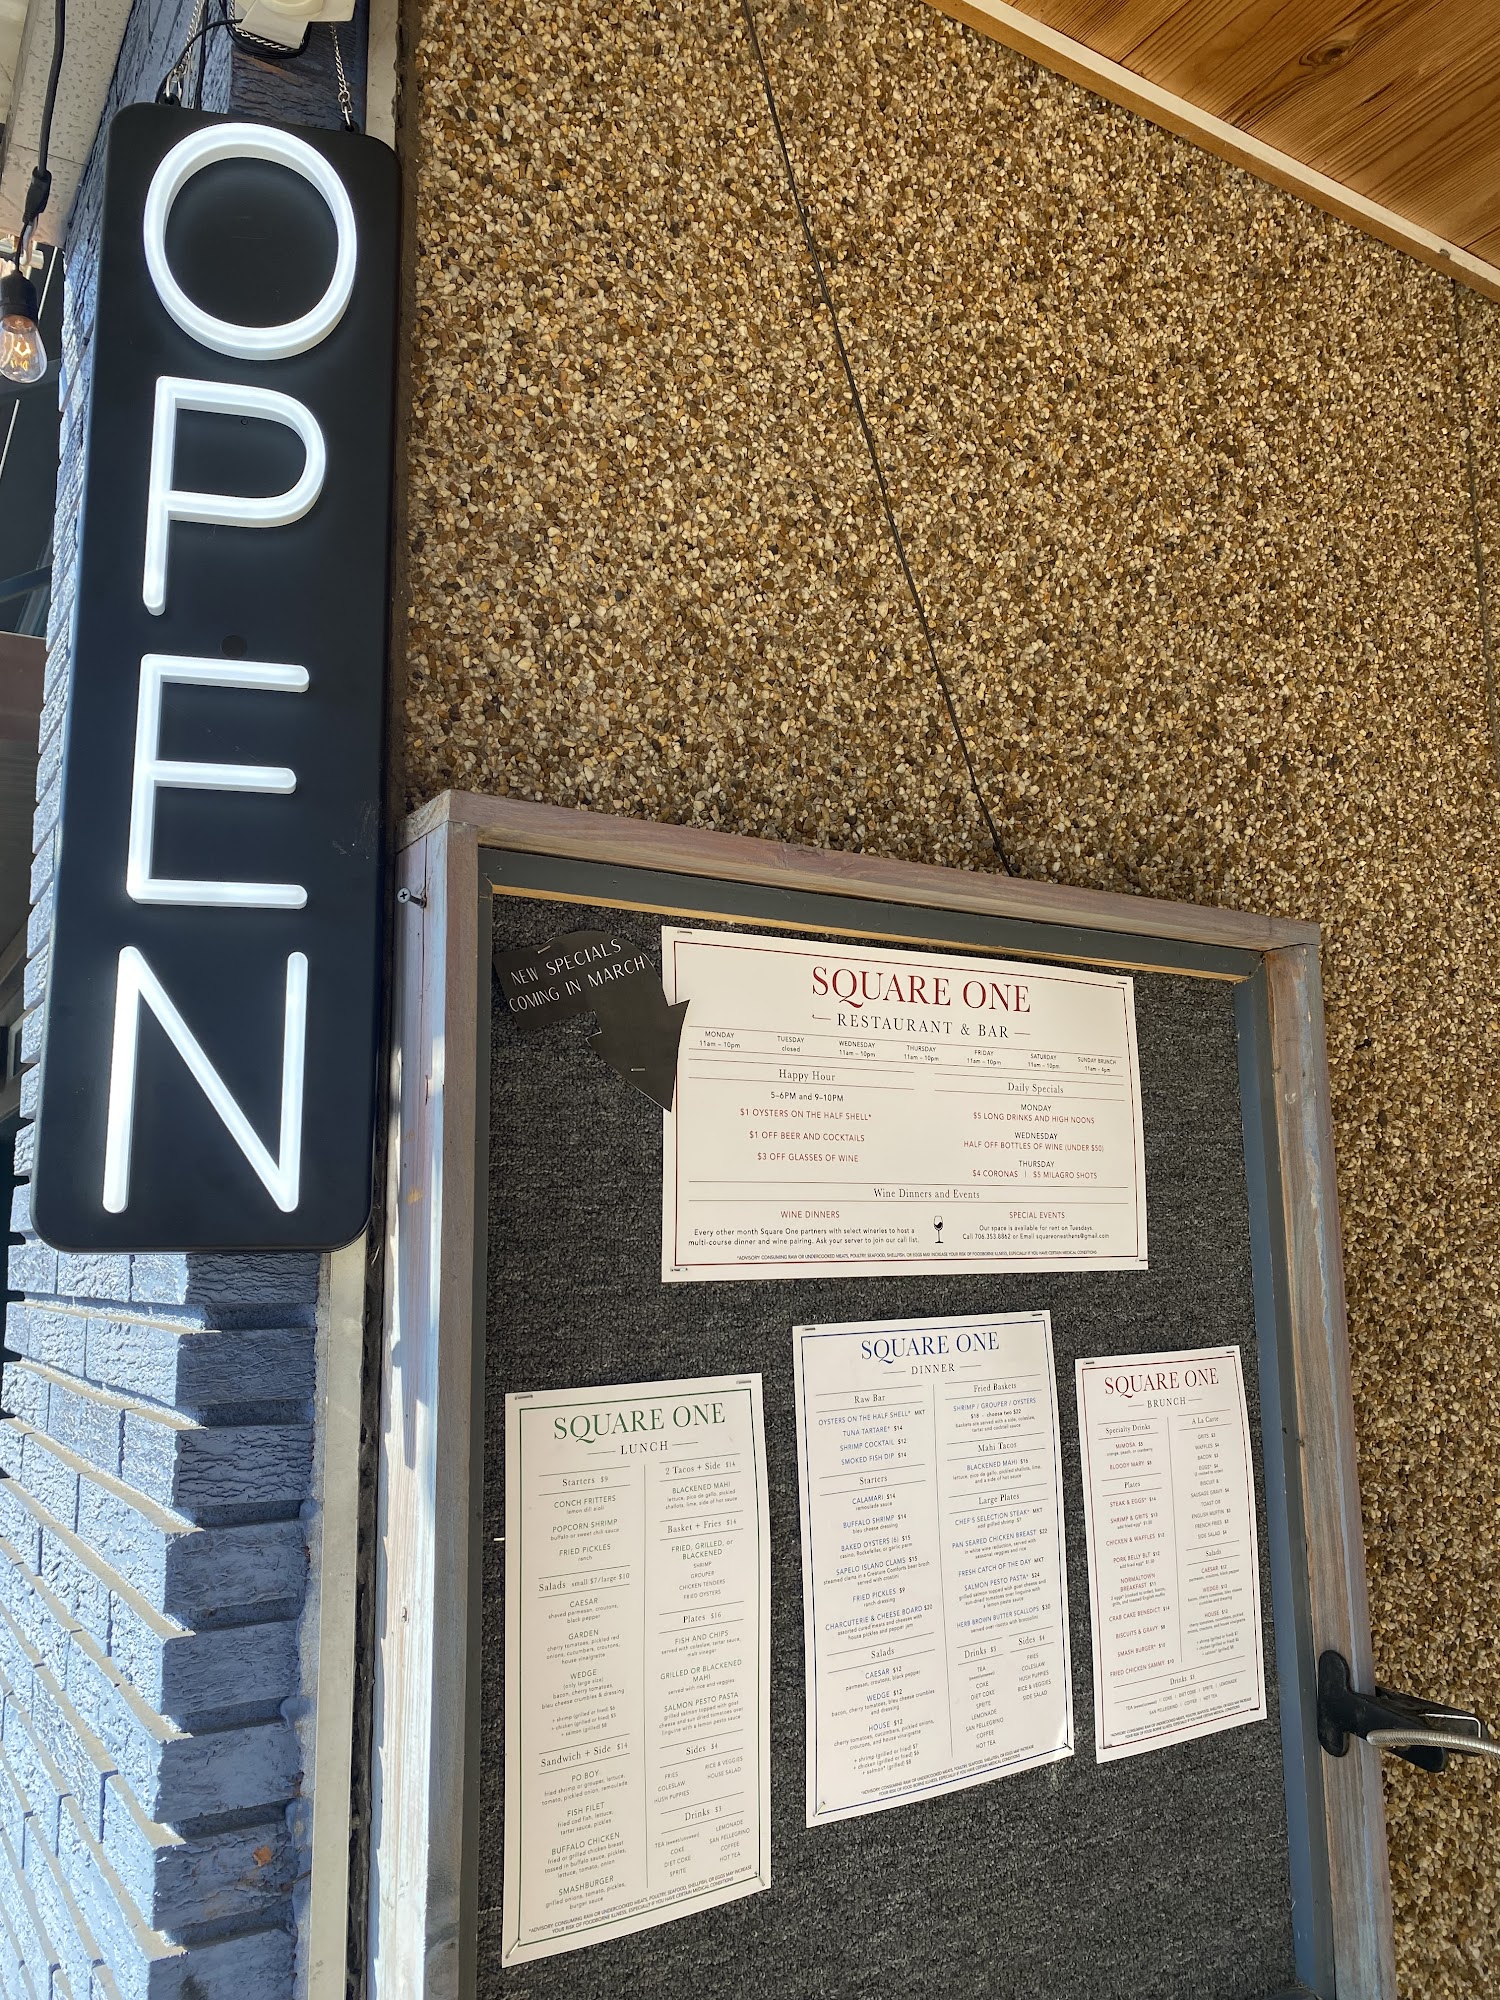 OPEN
NEW SPECIALS
COMING IN MARCH
SQUARE ONE
RESTAURANT & BAR
MONDAY
11am – 10pm
TUESDAY
closed
WEDNESDAY
11am – 10pm
THURSDAY
11am – 10pm
FRIDAY
11am – 10pm
SATURDAY
11am – 10pm
SUNDAY BRUNCH
11am – 4pm
Happy Hour
5–6PM and 9–10PM
$1 OYSTERS ON THE HALF SHELL*
$1 OFF BEER AND COCKTAILS
$3 OFF GLASSES OF WINE
Daily Specials
MONDAY
$5 LONG DRINKS AND HIGH NOONS
WEDNESDAY
HALF OFF BOTTLES OF WINE (UNDER $50)
THURSDAY
$4 CORONAS | $5 MILAGRO SHOTS
Wine Dinners and Events
WINE DINNERS
Every other month Square One partners with select wineries to host a
multi-course dinner and wine pairing. Ask your server to join our call list.
SPECIAL EVENTS
Our space is available for rent on Tuesdays.
Call 706.353.8862 or Email squareoneathens@gmail.com
*ADVISORY: CONSUMING RAW OR UNDERCOOKED MEATS, POULTRY, SEAFOOD, SHELLFISH, OR EGGS MAY INCREASE YOUR RISK OF FOODBORNE ILLNESS, ESPECIALLY IF YOU HAVE CERTAIN MEDICAL CONDITIONS
SQUARE ONE
LUNCH
Starters $9
CONCH FRITTERS
lemon dill aioli
POPCORN SHRIMP
buffalo or sweet chili sauce
FRIED PICKLES
ranch
Salads small $7/large $10
CAESAR
shaved parmesan, croutons,
black pepper
GARDEN
cherry tomatoes, pickled red
onions, cucumbers, croutons,
house vinaigrette
WEDGE
(only large size)
bacon, cherry tomatoes,
bleu cheese crumbles & dressing
+ shrimp (grilled or fried) $6
+ chicken (grilled or fried) $5
+ salmon (grilled) $8
Sandwich + Side $14
PO BOY
fried shrimp or grouper, lettuce,
tomato, pickled onion, remoulade
FISH FILET
fried cod fish, lettuce,
tartar sauce, pickles
BUFFALO CHICKEN
fried or grilled chicken breast
tossed in buffalo sauce, pickles,
lettuce, tomato, onion
SMASHBURGER
grilled onions, tomato, pickles,
burger sauce
2 Tacos + Side $14
BLACKENED MAHI
lettuce, pico de gallo, pickled
shallots, lime, side of hot sauce
Basket + Fries $14
FRIED, GRILLED, or
BLACKENED
SHRIMP
GROUPER
CHICKEN TENDERS
FRIED OYSTERS
Plates $16
FISH AND CHIPS
served with coleslaw, tartar sauce,
malt vinegar
GRILLED OR BLACKENED
MAHI
served with rice and veggies
SALMON PESTO PASTA
grilled salmon topped with goat
cheese and sun dried tomatoes over
linguine with a lemon pesto sauce
Sides $4
FRIES
COLESLAW
HUSH PUPPIES
RICE & VEGGIES
HOUSE SALAD
Drinks $3
TEA (sweet/unsweet)
COKE
DIET COKE
SPRITE
LEMONADE
SAN PELLEGRINO
COFFEE
HOT TEA
*ADVISORY: CONSUMING RAW OR UNDERCOOKED MEATS, POULTRY, SEAFOOD, SHELLFISH, OR EGGS MAY INCREASE
YOUR RISK OF FOODBORNE ILLNESS, ESPECIALLY IF YOU HAVE CERTAIN MEDICAL CONDITIONS
SQUARE ONE
DINNER
Raw Bar
OYSTERS ON THE HALF SHELL* MKT
TUNA TARTARE* $14
SHRIMP COCKTAIL $12
SMOKED FISH DIP $14
Starters
CALAMARI $14
remoulade sauce
BUFFALO SHRIMP $14
bleu cheese dressing
BAKED OYSTERS (6) $15
casino, Rockefeller, or garlic parm
SAPELO ISLAND CLAMS $15
steamed clams in a Creature Comforts beer broth
served with crostini
FRIED PICKLES $9
ranch dressing
CHARCUTERIE & CHEESE BOARD $20
assorted cured meats and cheeses with
house pickles and pepper jam
Salads
CAESAR $12
parmesan, croutons, black pepper
WEDGE $12
bacon, cherry tomatoes, bleu cheese crumbles
and dressing
HOUSE $12
cherry tomatoes, cucumbers, pickled onions,
croutons, and house vinaigrette
+ shrimp (grilled or fried) $7
+ chicken (grilled or fried) $6
+ salmon* (grilled) $8
Fried Baskets
SHRIMP / GROUPER / OYSTERS
$18 - choose two $22
baskets are served with a side, coleslaw,
tartar and cocktail sauce
Mahi Tacos
BLACKENED MAHI $16
lettuce, pico de gallo, pickled shallots, lime,
and a side of hot sauce
Large Plates
CHEF'S SELECTION STEAK* MKT
add grilled shrimp $7
PAN SEARED CHICKEN BREAST $22
in white wine reduction, served with
seasonal veggies and rice
FRESH CATCH OF THE DAY MKT
SALMON PESTO PASTA* $24
grilled salmon topped with goat cheese and
sun-dried tomatoes over linguine with
a lemon pesto sauce
HERB BROWN BUTTER SCALLOPS $30
served over risotto with broccolini
Drinks $3
TEA
(sweet/unsweet)
COKE
DIET COKE
SPRITE
LEMONADE
SAN PELLEGRINO
COFFEE
HOT TEA
Sides $4
FRIES
COLESLAW
HUSH PUPPIES
RICE & VEGGIES
SIDE SALAD
*ADVISORY: CONSUMING RAW OR UNDERCOOKED MEATS, POULTRY, SEAFOOD, SHELLFISH, OR EGGS MAY INCREASE
YOUR RISK OF FOOD BORNE ILLNESS, ESPECIALLY IF YOU HAVE CERTAIN MEDICAL CONDITIONS
SQUARE ONE
BRUNCH
Specialty Drinks
MIMOSA $5
orange, peach, or cranberry
BLOODY MARY $8
Plates
STEAK & EGGS* $14
SHRIMP & GRITS $13
add fried egg* $1.50
CHICKEN & WAFFLES $12
PORK BELLY BLT $12
add fried egg* $1.50
NORMALTOWN
BREAKFAST $11
CRAB CAKE BENEDICT $14
BISCUITS & GRAVY $8
SMASH BURGER* $10
FRIED CHICKEN SAMMY $10
A La Carte
GRITS $3
WAFFLES $4
BACON $3
EGGS* $4
BISCUIT &
SAUSAGE GRAVY $4
TOAST OR
ENGLISH MUFFIN $3
FRENCH FRIES $3
SIDE SALAD $4
Salads
CAESAR $12
parmesan, croutons, black pepper
WEDGE $12
bacon, cherry tomatoes, bleu cheese
crumbles and dressing
HOUSE $12
cherry tomatoes, cucumbers, pickled
onions, croutons, and house vinaigrette
Drinks $3
TEA (sweet/unsweet) | COKE | DIET COKE | SPRITE | LEMONADE
SAN PELLEGRINO | COFFEE | HOT TEA